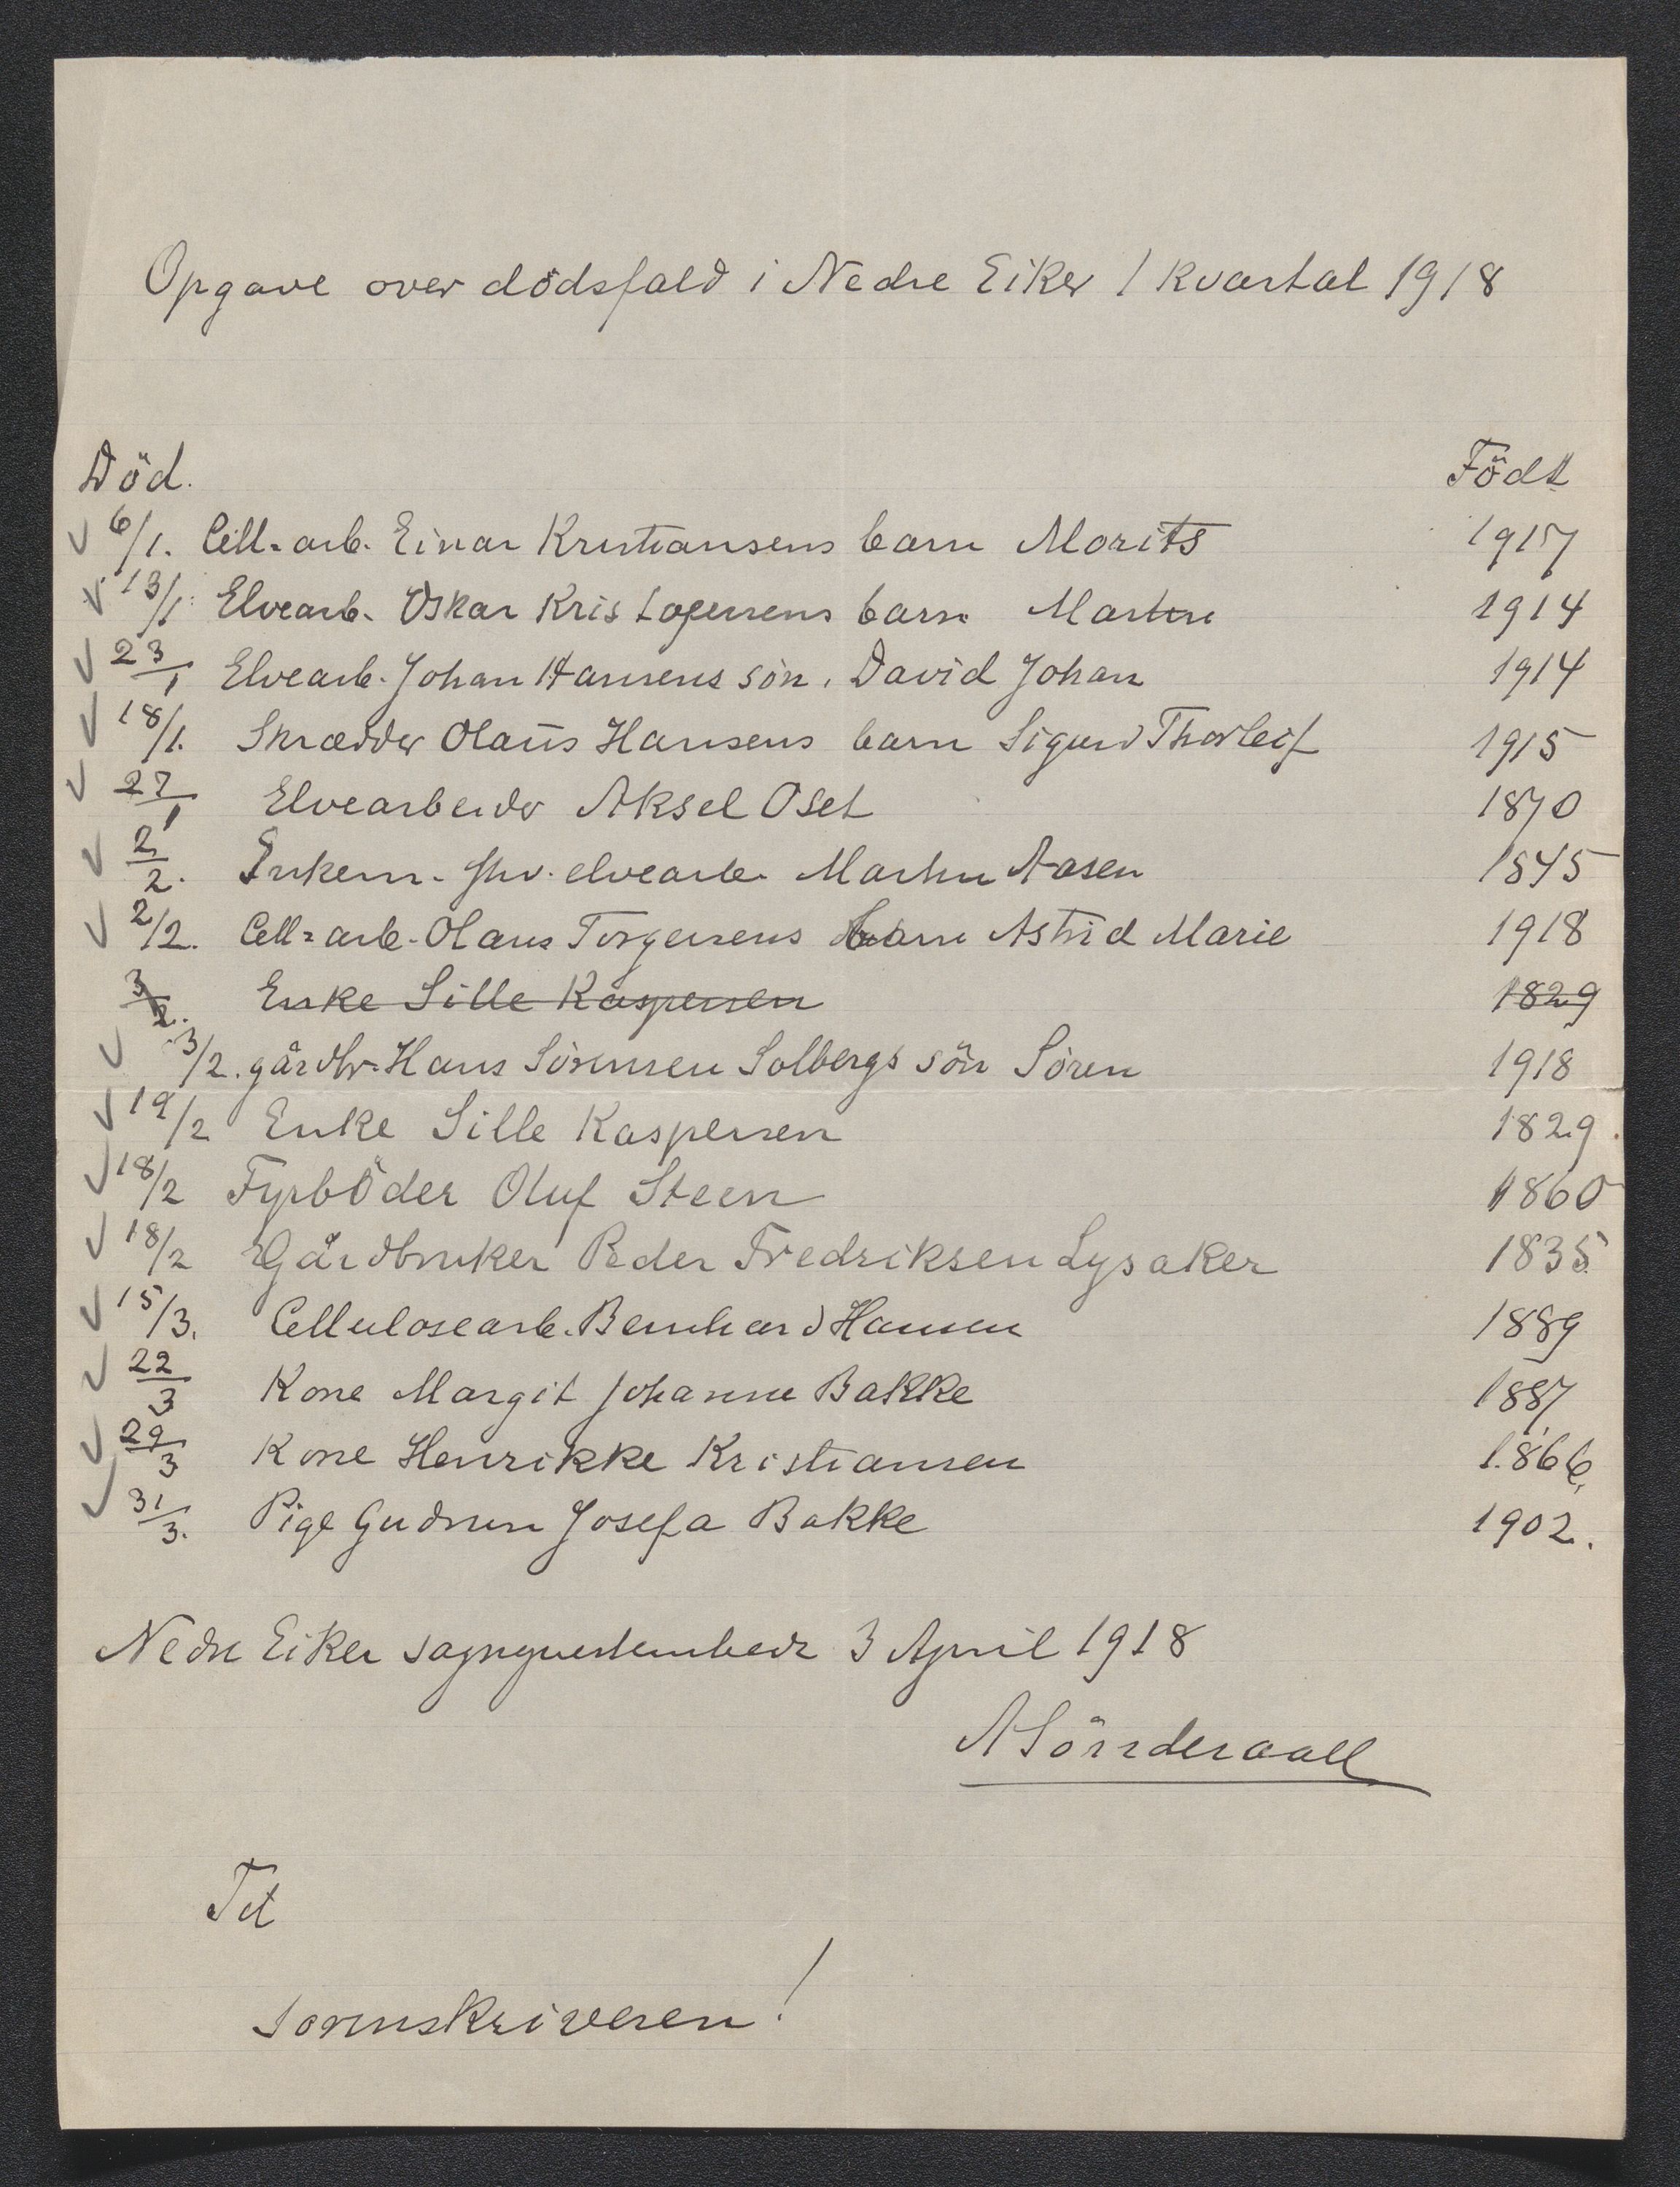 Opgave over dödsfald i Nedre Eiker 1 kvartal 1918
Död. Född
6/1. Cell-arb. Einar Kristiansens barn Morits 1917
13/1 Elvearb. Oskar Kristofersens barn Martin 1914
23/1 Elvearb. Johan Hansens sön, David Johan 1914
18/1. Skrædder Olaus Hansens barn Sigurd Thorleif 1915
27/1 Elvearbeider Aksel Oset 1870
2/2. Enkem. fhv. elvearb. Martin Aasen 1845
2/2. Cell-arb. Olaus Torgersens barn Astrid Marie 1918
3/2. Enke Sille Kaspersen 1829
3/2. gårdbr. Hans Sörensen Solbergs sön Sören 1918
19/2 Enke Sille Kaspersen 1829.
18/2 Fyrböder Oluf Steen 1860
18/2 Gårdbruker Peder Fredriksen Lysaker 1835
15/3. Cellulosearb. Bernhard Hansen 1889
22/3 Kone Margit Johanne Bakke 1887
29/3 Kone Henrikke Kristiansen 1866
31/3. Pige Gudrun Josefa Bakke 1902.
Nedre Eiker 3 April 1918
A Sönderaall
Til
sorenskriveren!